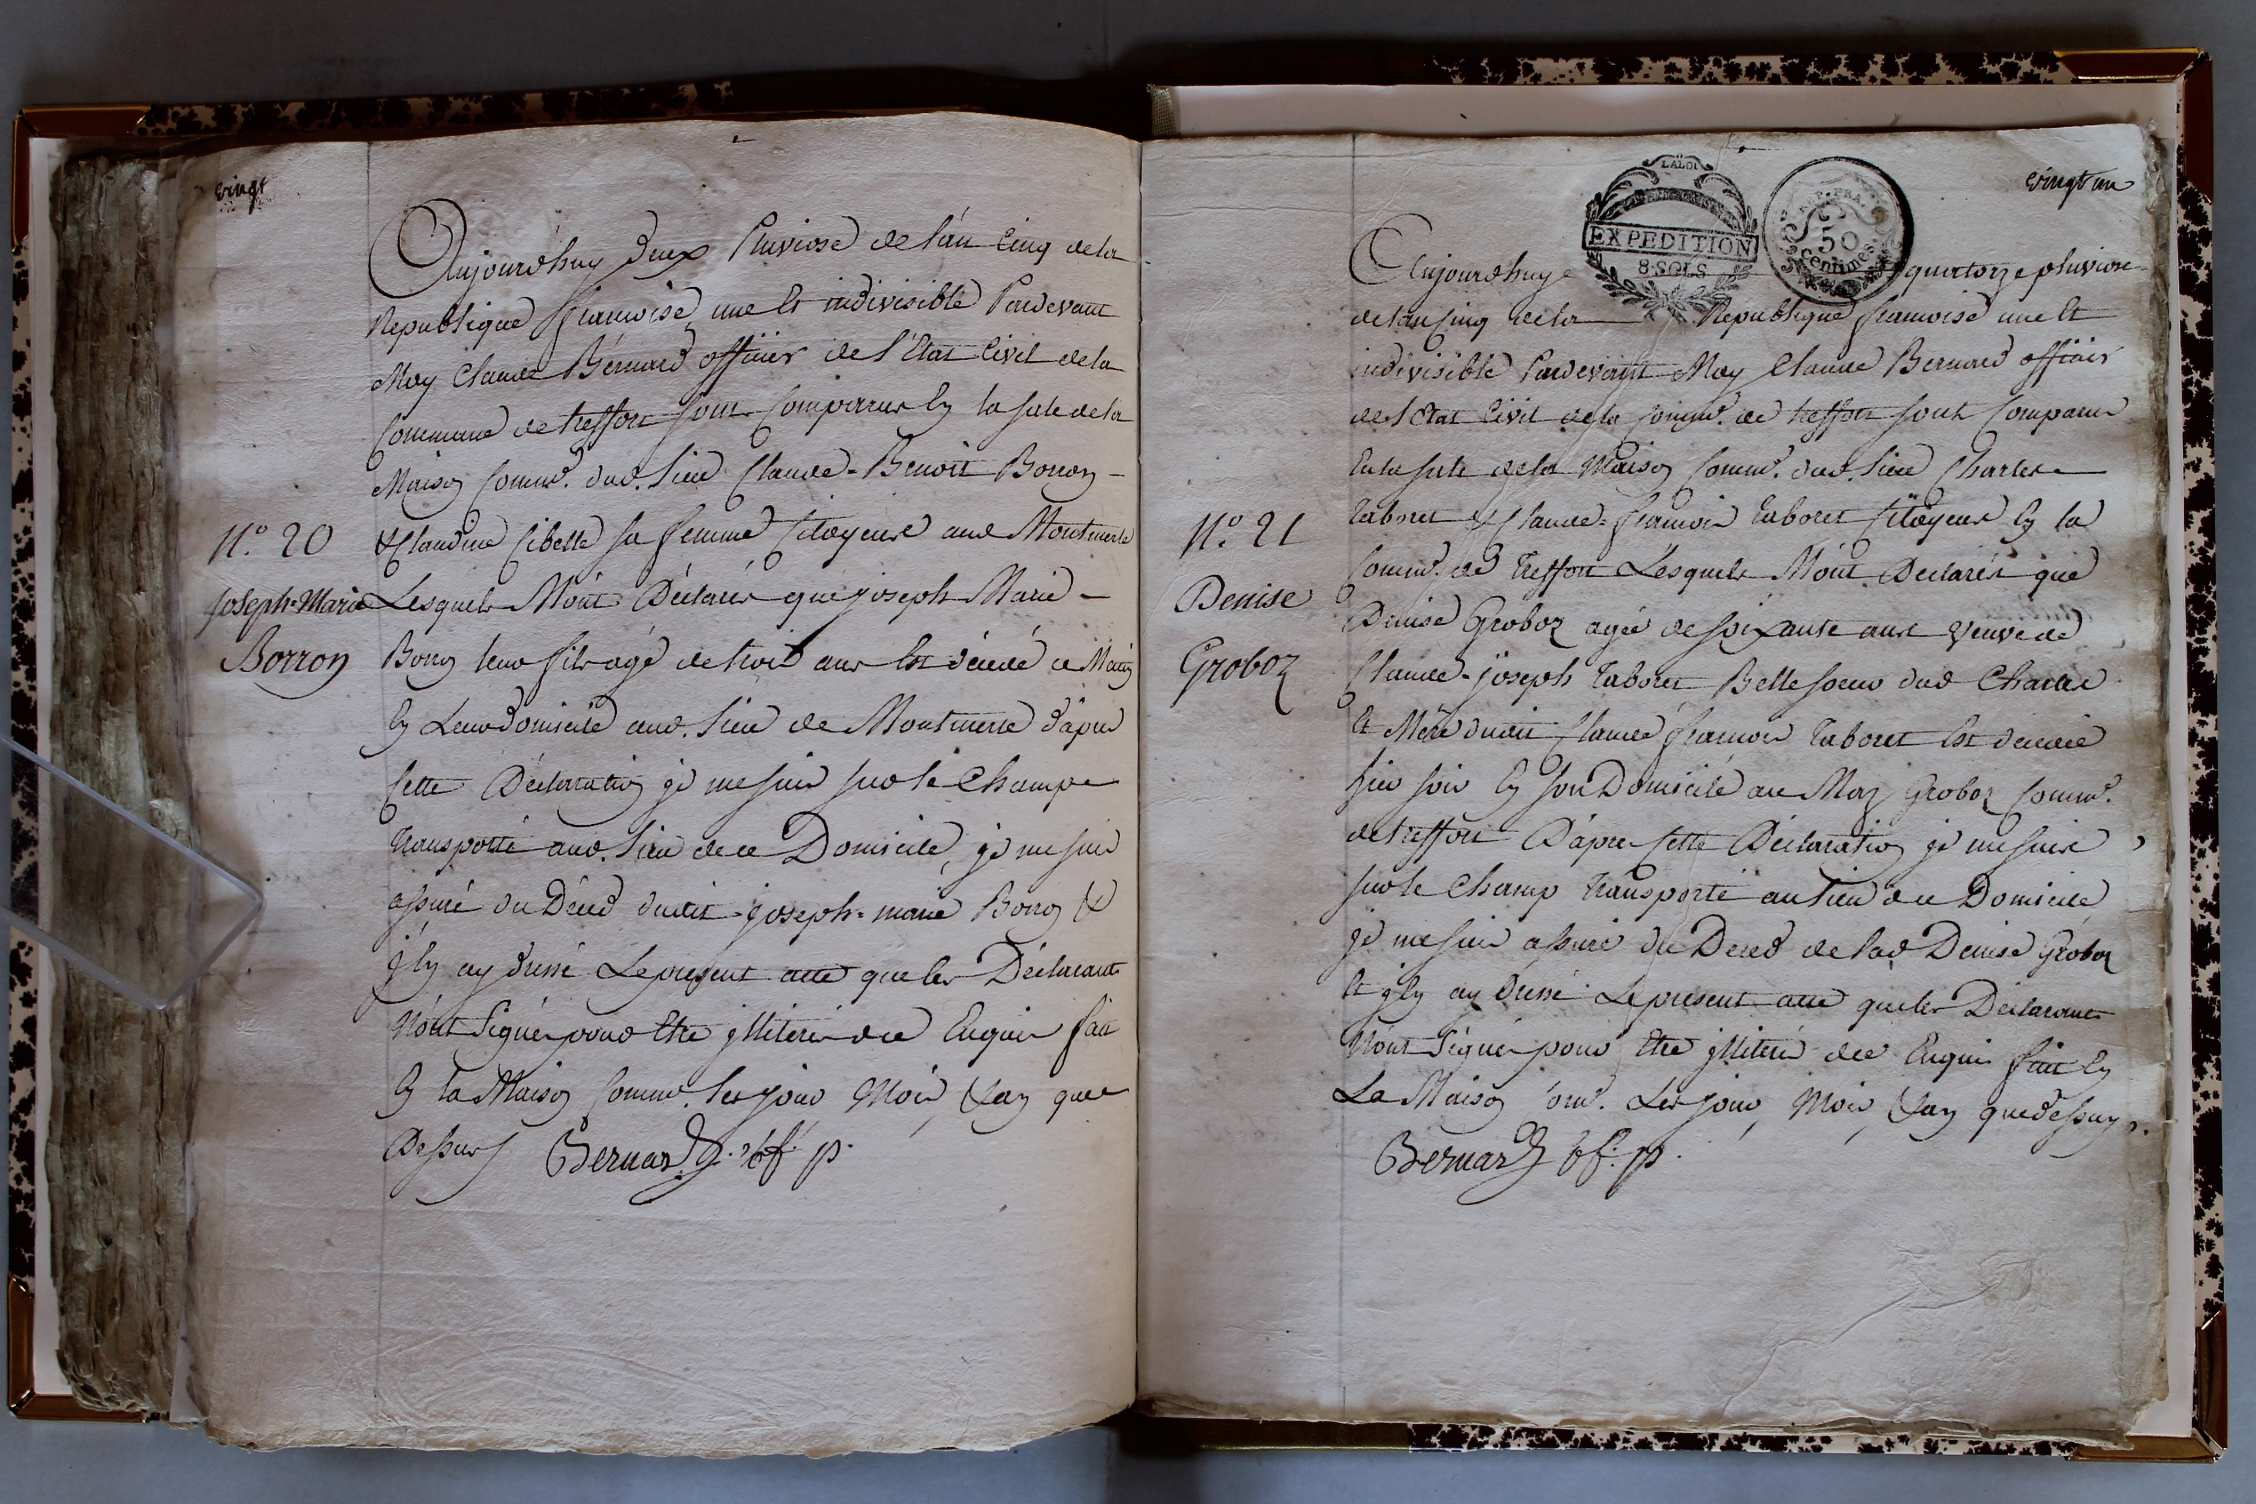 vingt
Aujourdhuy deux Pluviose de l'an Cinq de la
Republique francoise une Et indivisible Pardevant
Moy Claude Bernard officier de l'Etat Civil de la
Commune de treffort sont Comparus En la sale de la
Maison Commne. dud. lieu Claude-Benoit Borron
N.º 20
& Claudine Cibelle sa femme Citoyens aud Montmerle
Joseph-Marie
Borron
Lesquels M'ont Déclarés que joseph Marie
Borron leur fils agé de trois ans Est décédé ce Matin
En Leur domicile aud. lieu de Montmerle d'apres
Cette Déclaration je me suis sur le Champ
transporté aud. lieu de ce Domicile, je me suis
assuré du Décéd dudit joseph-marie Borron &
j'En ay dressé Le present acte que les Déclarants
N'ont Signés pour Etre jlliterés de ce Enquis fait
En la Maison Commne. les jour Mois, & an que
Dessus Bernard off. p.
vingt un
LA LOI
EXPEDITION
8 SOLS
REP. FRA.
50
Centimes
Aujourdhuy quatorze pluviose
de l'an Cinq de la Republique francoise une Et
indivisible Pardevant Moy Claude Bernard officier
de l'Etat Civil de la Commne. de treffort sont Comparus
En la sale de la Maison Commne. dud. lieu Charles
N.º 21
Denise
Groboz
taboret & Claude-francois taboret Citoyens En la
Commne. de Treffort Lesquels M'ont Declarés que
Denise Groboz agée de soixante ans Veuve de
Claude-joseph taboret Belle soeur dud Charles
Et Mere dudit Claude francois taboret Est décédée
hier soir En son Domicile au Maz Groboz Commne.
de treffort D'apres Cette Déclaration je me suis
sur le Champ transporté au lieu de ce Domicile
je me suis assuré du Deced de lad Denise Groboz
Et j'En ay dressé Le present acte que les Déclarants
N'ont Signés pour Etre jlliterés de ce Enquis fait En
La Maison Com. Les jour, Mois, & an que dessus.
Bernard off. p.